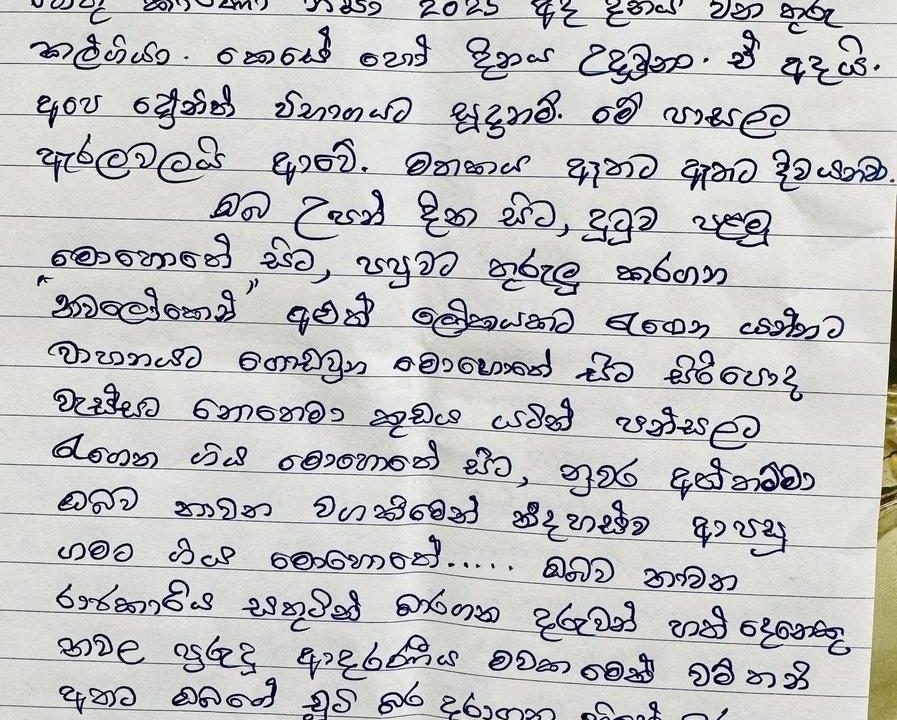 හේතු කාරණා නිසා 2025 අද දිනය වන තුරු
කල්ගියා. කෙසේ හෝ දිනය උදාවුනා. ඒ අදයි.
අපෙ දෝණිත් විභාගයට සූදානම්. මේ පාසලට
ඇරලවලයි ආවේ. මතකය ඈතට ඈතට දිවයනවා.
ඔබ උපන් දින සිට, දුටුව පළමු
මොහොතේ සිට, පපුවට තුරුලු කරගන
"නවලෝකෙන්" අළුත් ලෝකයකට රැගෙන යන්නට
වාහනයට ගොඩවුන මොහොතේ සිට සිරිපොද
වැස්සට නොතෙමා කුඩය යටින් පන්සලට
රැගෙන ගිය මොහොතේ සිට, නුවර අත්තම්මා
ඔබව නාවන වගකීමෙන් නිදහස්ව ආපසු
ගමට ගිය මොහොතේ..... ඔබව නාවන
රාජකාරිය සතුටින් භාරගන දරුවන් හත් දෙනෙකු
නාවල පුරුදු ආදරණීය මවක මෙන් වම් තනි
අතට ඔබගේ චූටි බර දරාගන